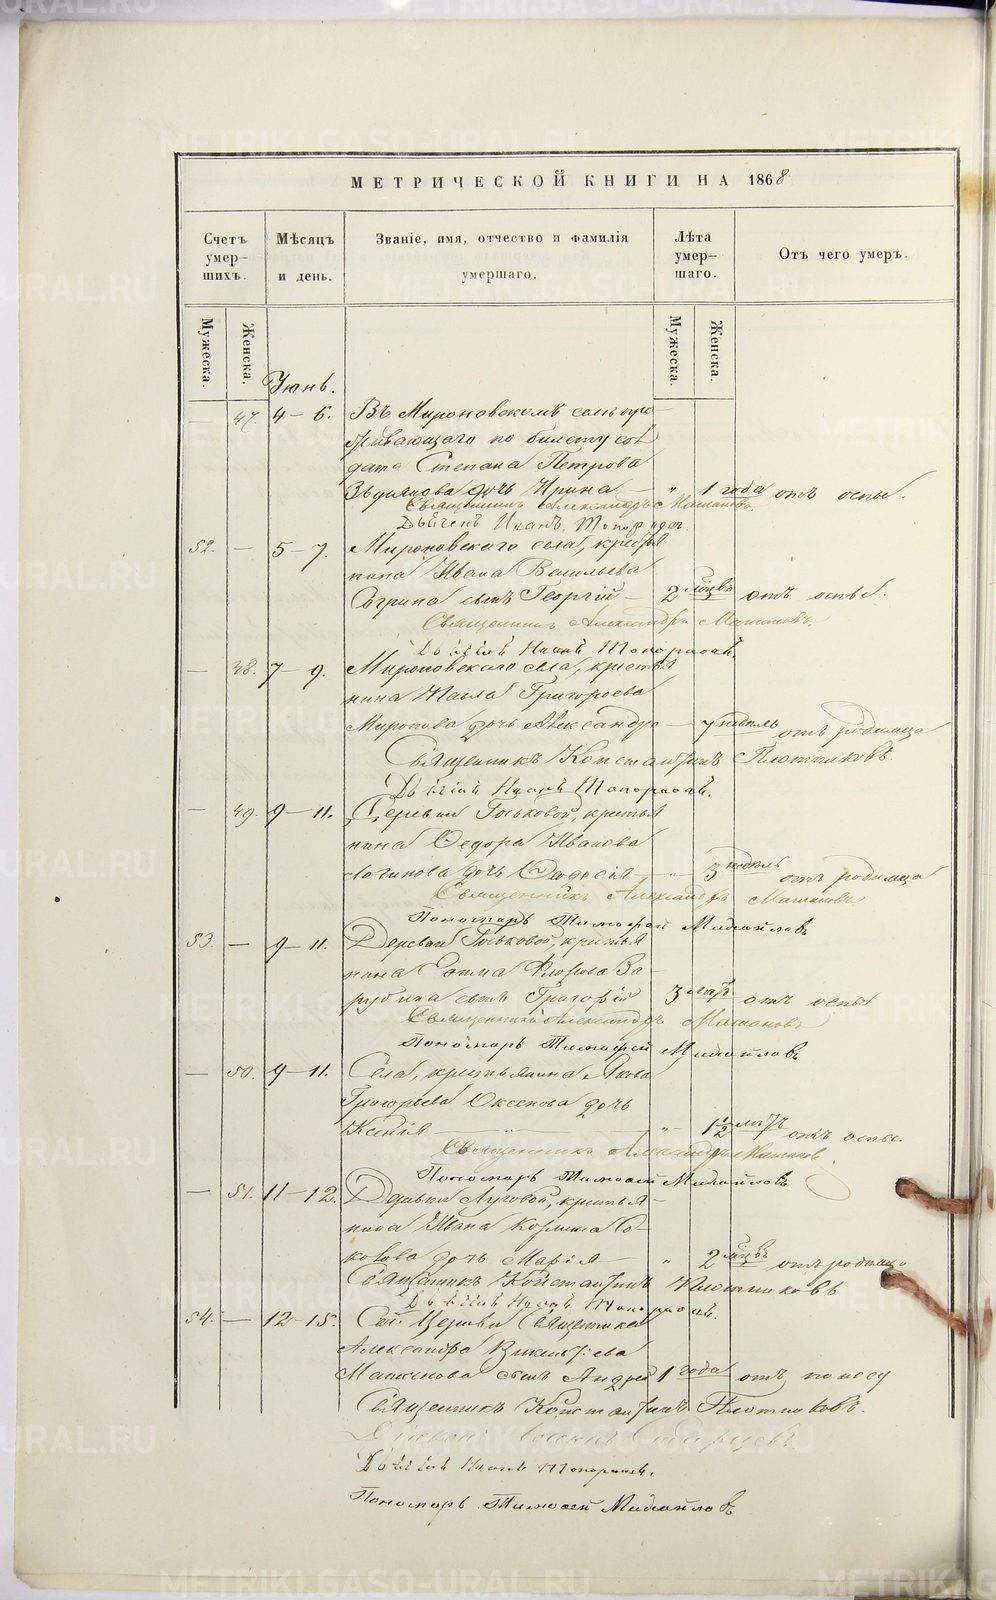 МЕТРИЧЕСКОЙ КНИГИ НА 1868
Счетъ умер-шихъ.
Мѣсяцъ и день.
Званіе, имя, отчество и фамилія умершаго.
Лѣта умер-шаго.
Отъ чего умеръ.
Мужеска.
Женска.
Мужеска.
Женска.
Іюнь.
— 47. 4–6. Въ Мироновскомъ селѣ про-
живающаго по билету сол
дата Степана Петрова
дочь Ирина — " 1 года отъ оспы.
Священникъ Александръ Машановъ.
Дьячекъ Иоаннъ Топорковъ.
52. — 5–7. Мироновскаго села, крестья
нина Ивана Васильева
сынъ Георгій — 2 мѣсѧцъ отъ оспы.
Священникъ Александръ Машановъ.
Дьячекъ Иоаннъ Топорковъ.
— 48. 7–9. Мироновскаго села, крестья
нина Григорьева
Миронова дочь Александра — 7 недѣль отъ родимца
Священникъ Константинъ Плотниковъ
Дьячекъ Иоаннъ Топорковъ.
— 49. 9–11. Деревни Гоьковой, крестья
нина Федора Иванова
Логинова дочь — " 3 недѣль отъ родимца
Священникъ Александръ Машановъ
Пономарь Тимофей Михайловъ
53. — 9–11. Деревни Гоьковой, крестья
нина Фролова За-
рубина сынъ Григорій 3 лѣтъ отъ оспы
Священникъ Александръ Машановъ
Пономарь Тимофей Михайловъ
— 50. 9–11. Села, крестьянина Якова
Григорьева Оксенова дочь
Ксенія — " — " 1½ лѣтъ отъ оспы.
Священникъ Александръ Машановъ.
Пономарь Тимофей Михайловъ
— 51. 11–12. Деревни Луговой, крестья-
нина Ивана Козмина Со-
колова дочь Марія — " 2 мѣсѧцъ отъ родимца
Священникъ Константинъ Плотниковъ
Дьячекъ Иоаннъ Топорковъ.
54. — 12–15. Сей Церкви Священника
Александра Викентіева
Машанова сынъ Андрей 1 года отъ поносу
Священникъ Константинъ Плотниковъ.
Дьячекъ Иоаннъ Топорковъ.
Пономарь Тимофей Михайловъ
METRIKI.GASO-URAL.RU